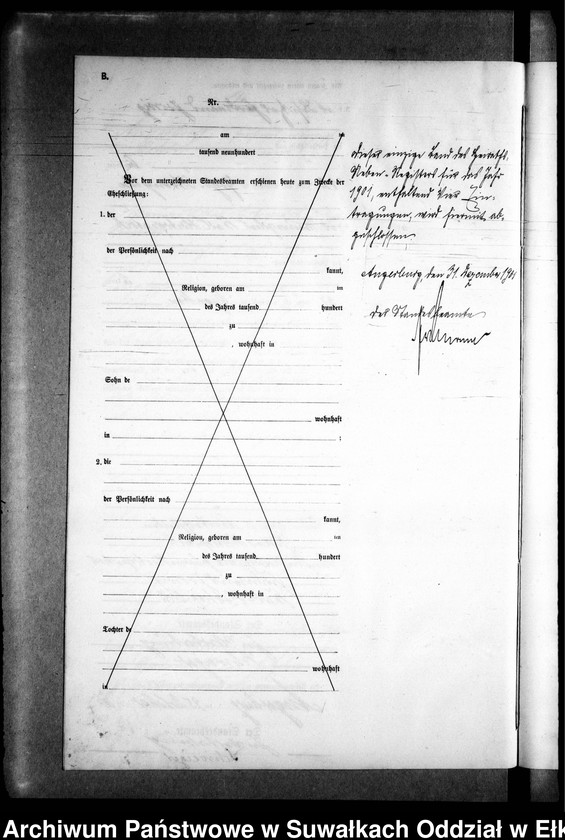 B.
Nr.
am
tausend neunhundert
Vor dem unterzeichneten Standesbeamten erschienen heute zum Zwecke der
Eheschließung:
1. der
der Persönlichkeit nach
kannt,
Religion, geboren am im
des Jahres tausend hundert
zu
, wohnhaft in
Sohn de
wohnhaft
in ;
2. die
der Persönlichkeit nach
kannt,
Religion, geboren am im
des Jahres tausend hundert
zu
, wohnhaft in
Tochter de
wohnhaft
in
Dieses einzige Band des Heirats-
Neben-Registers für das Jahr
1901, enthaltend Ein-
tragungen, wird hiermit ab-
geschlossen
Angerburg, den 31. Dezember 1901
Der Standesbeamte
Archiwum Państwowe w Suwałkach Oddział w Ełk